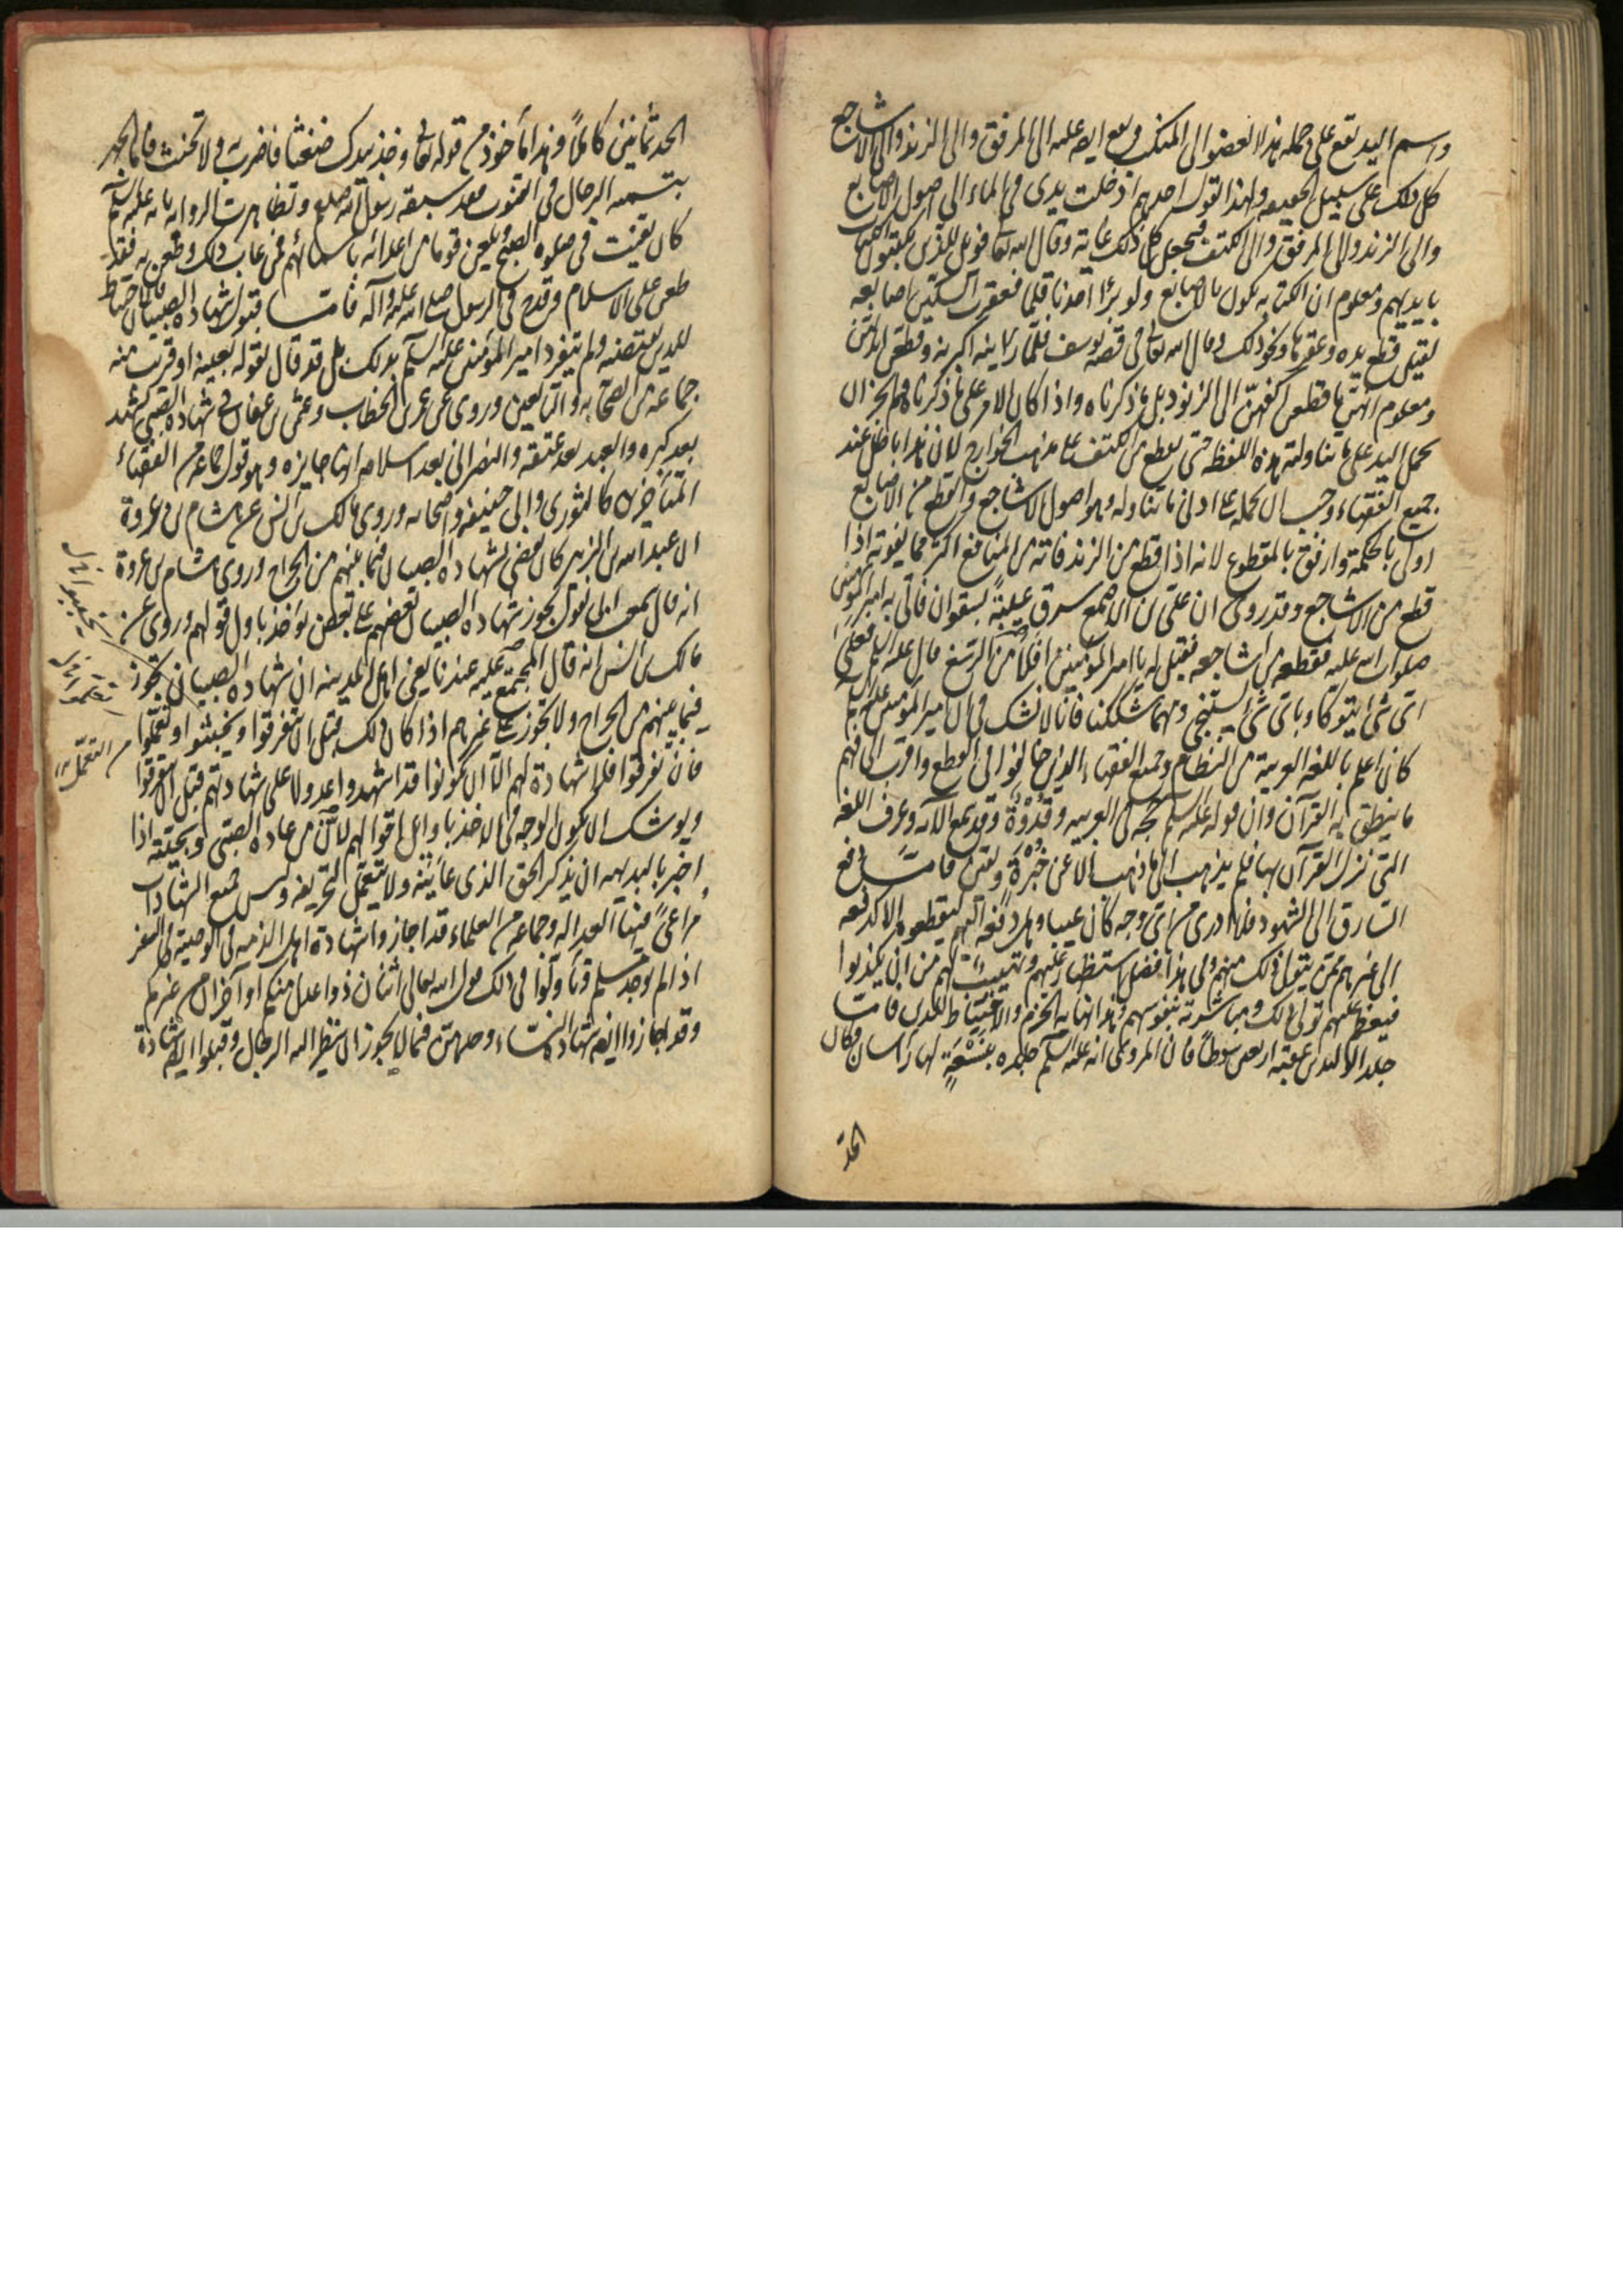 واسم اليد يقع على جملة هذا العضو الى المنكب ويقع ايضا عليه الى المرفق والى الزند والى الاشاجع
كل ذلك على سبيل الحقيقة ولهذا يقول احدهم ادخلت يدى فى الماء الى اصول الاصابع
والى الزند والى المرفق والى الكتف فيجعل كل ذلك غاية وقال الله تعالى فويل للذين يكتبون الكتاب
بايديهم ومعلوم ان الكتابة يكون بالاصابع ولو برى احدنا قلما فعقرت السكين اصابعه
لقيل قطع يده وعقرها ونحو ذلك وقال الله تعالى فى قصة يوسف فلما راينه اكبرنه وقطعن ايديهن
ومعلوم انهن ما قطعن اكفهن الى الزنود بل ما ذكرناه واذا كان الامر على ما ذكرناه فلم يجز ان
يحمل اليد على ما تناولته هذه اللفظة حتى يقطع من الكتف على مذهب الخوارج لان هذا باطل عند
جميع الفقهاء وجب ان نحمله على ادنى ما تناوله وهو اصول الاشاجع والقطع من الاصابع
اولى بالحكمة وارفق بالمقطوع لانه اذا قطع من الزند فاته من المنافع اكثر مما يفوته اذا
قطع من الاشاجع وقد روى ان على بن اصمع سرق عيبة لصفوان فاتى به امير المؤمنين
صلوات الله عليه فقطعه من اشاجعه فقيل له يا امير المؤمنين افلا من الرسغ قال عليه السلم فعلى
اى شئ يتوكأ وباى شئ يستنجى ومهما شككنا فانا لا نشك فى ان امير المؤمنين عليه السلم
كان اعلم باللغة العربية من النظام وجميع الفقهاء الذين خالفوا فى القطع واقرب الى فهم
ما ينطق به القرآن وان قوله عليه السلم حجة فى العربية وقدوة وقد سمع الآية وعرف اللغة
التى نزل القرآن بها فلم يذهب الى ما ذهب الا عن خبرة ويقين فاما دفع
السارق الى الشهود فلا ادرى من اى وجه كان عيبا وهل دفعه اليهم ليقطعوه الا كدفعه
الى غيرهم ممن يتولى ذلك منهم وفى هذا فضل استظهار عليهم وتهييب لهم من ان يكذبوا
فيعظم عليهم تولى ذلك ومباشرته بنفوسهم وهذا نهاية الحزم والاحتياط للدين فاما
جلد الوليد بن عقبة اربعين سوطا فان المروى انه عليه السلم جلده بنسعة لها راسان فكان
الحد
الحد ثمانين كاملا وهذا مأخوذ من قوله تعالى وخذ بيدك ضغثا فاضرب به ولا تحنث فاما الجهر
بتسمية الرجال فى القنوت فقد سبقه رسول الله صلعم وتظاهرت الرواية بانه عليه السلم
كان يقنت فى صلوة الصبح ويلعن قوما من اعدائه باسمائهم فمن عاب ذلك وطعن به فقد
طعن على الاسلام وقدح فى الرسول صلى الله عليه وآله فاما قبول شهادة الصبيان فالاحتياط
للدين يقتضيه ولم يتفرد امير المؤمنين عليه السلم بذلك بل قد قال بقوله بعينه او قريب منه
جماعة من الصحابة والتابعين وروى عن عمر بن الخطاب وعثمن بن عفان فى شهادة الصبى يشهد
بعد كبره والعبد بعد عتقه والنصرانى بعد اسلامه انها جايزة وهو قول جماعة من الفقهاء
المتأخرين كالثورى وابى حنيفة واصحابه وروى مالك بن انس عن هشام بن عروة
ان عبد الله بن الزبير كان يقضى بشهادة الصبيان فيما بينهم من الجراح وروى هشام بن عروة
انه قال سمعت ابى يقول يجوز شهادة الصبيان بعضهم على بعض يؤخذ باول قولهم وروى عن
مالك بن انس انه قال المجتمع عليه عندنا يعنى اهل المدينة ان شهادة الصبيان تجوز
فيما بينهم من الجراح ولا تجوز على غيرهم اذا كان ذلك قبل ان يتفرقوا ويخبثوا او يعملوا
فان تفرقوا فلا شهادة لهم الا ان يكونوا قد اشهدوا عدولا على شهادتهم قبل ان يتفرقوا
ويوشك ان يكون الوجه فى الاخذ باوائل اقوالهم لان من عادة الصبى وسجيته اذا
اخبر بالبديهة ان يذكر الحق الذى عاينه ولا يتعمل لتحريفه وليس جميع الشهادات
مراعى فيها العدالة وجماعة من العلماء قد اجازوا شهادة اهل الذمة فى الوصية فى السفر
اذا لم يوجد مسلم وتأولوا فى ذلك قول الله تعالى اثنان ذوا عدل منكم او آخران من غيركم
وقد اجازوا ايضا شهادة النساء وحدهن فيما لا يجوز ان ينظر اليه الرجال وقبلوا ايضا شهادة